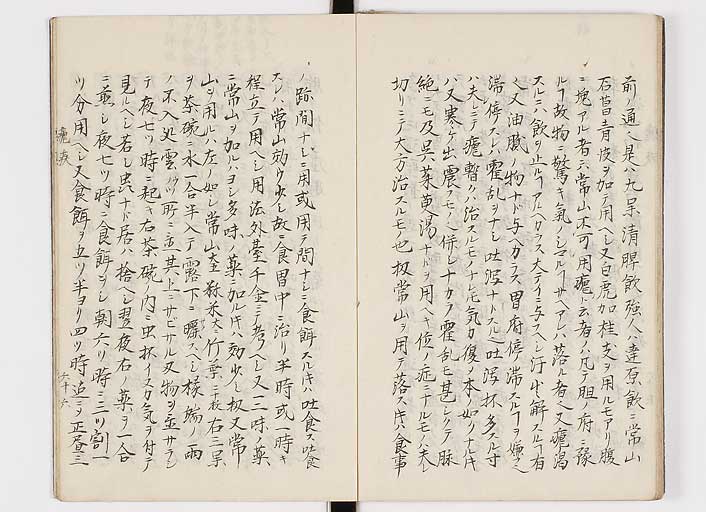 前ノ通ヘ是ハ九呆清脾飲強人ハ達原飲ニ常山
石菖青皮ヲ加テ用ヘシ又白虎加桂支ヲ用ルモアリ腹
ニ塊アル者ニ常山不可用瘧ト云者ハ凡テ胆ノ府ニ豫
ルヿ故物ニ驚キ氣ノシマルヿサヘアレハ落ル者ヘ又瘧渇
スルニハ飲ヲ止ルヿアルヘカラス大テイニ与ヘシ汗出解スルヿ有
又油膩ノ物ナト与ヘカラス胃府停滞スルヿヲ嫌
滞停スレハ霍乱ヲナシ吐瀉ナトスル吐瀉抔多スル寸
ハ夫ニテ瘧暫クハ治スルモノナレ𪜈気力復ノ本ノ如クナル寸
ハ又寒ケ出震モノ併シナカラ霍乱モ甚シクテ脉
絶ニモ及呉茱萸湯ナトヲ用ヘキ位ノ症ニナルモノハ夫レ
切リニテ大方治スルモノ也扨常山ヲ用テ落ス寸ハ食事
ノ跡間ナシニ用或用テ間ナシニ食餌スル寸ハ吐食ス吐食
スレハ常山効少シ故ニ食胃中ニ治リ半時或一時キ
程立テ用ヘシ用法外臺千金ニ考ヘシ又一二味ノ藥
ニ常山ヲ加ルハヨシ多味ノ藥ニ加ル寸ハ効少シ扨又常
山ヲ用ルハ左ノ如シ常山大秫米大竹葉二十枚右三品
ヲ茶碗ニ水一合半入テ露下ニ曝スヘシ椽端ノ雨
ノ不入処雪抔所ニ並其上ニサビサル刃物ヲ並サラシ
テ夜七ツ時ニ起キ右茶碗ノ内ニ虫抔イヌカ気ヲ付テ
見ルヘシ若シ虫ナト居ハ捨ヘシ翌夜右ノ藥ヲ一合
ニ煎シ夜七ツ時ニ食餌ヲシ朝六ツ時ニ三ツ割一
ツ分用ヘシ又食餌ヲ五ツ半ヨリ四ツ時迠ニシ正昼ニ
瘧疾
六十六